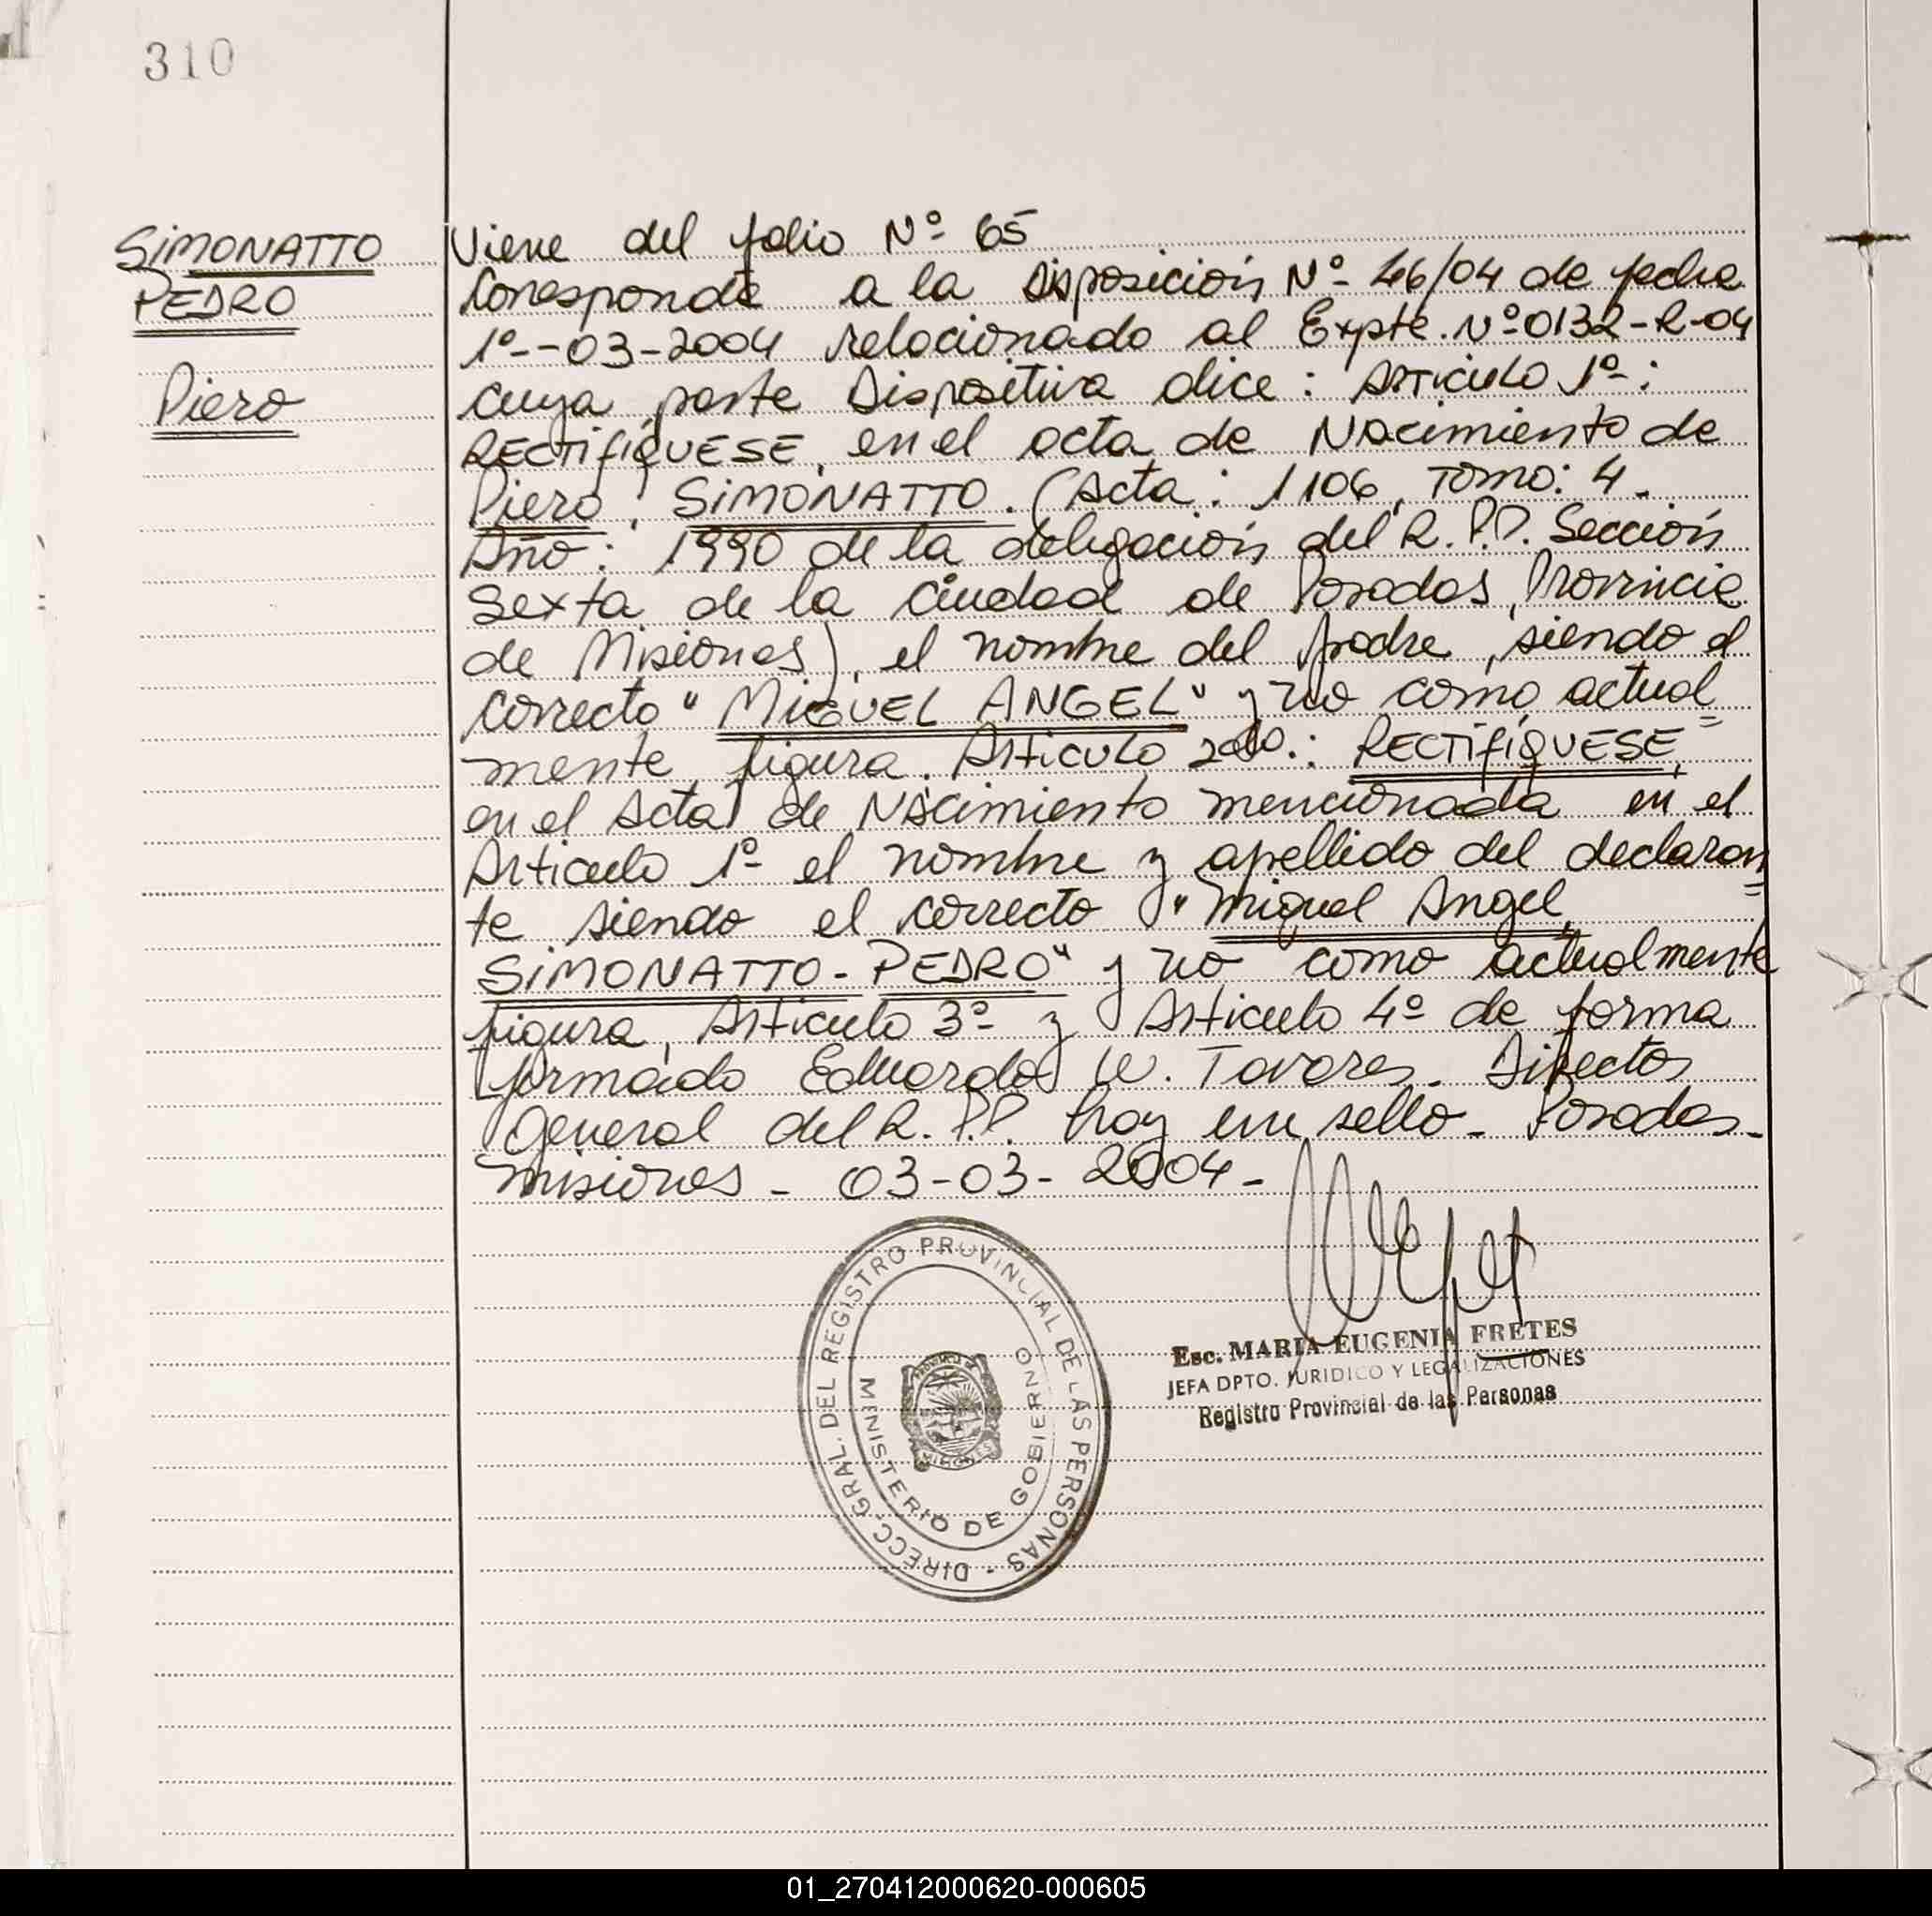 310
SIMONATTO
PEDRO
Piero
Viene del folio Nº 65
Corresponde a la Disposición Nº 46/04 de fecha
1º--03-2004 relacionado al Expte. Nº 0132-R-04
cuya parte Dispositiva dice: Articulo 1º:
RECTIFÍQUESE, en el acta de Nacimiento de
Piero, SIMONATTO. (Acta: 1106, Tomo: 4.
Año: 1990 de la delegación del R.P.P. Sección
Sexta de la Ciudad de Posadas, Provincia
de Misiones), el nombre del padre, siendo el
correcto "MIGUEL ANGEL" y no como actual=
mente figura. Articulo 2do.: RECTIFÍQUESE,
en el Acta de Nacimiento mencionada en el
Articulo 1º el nombre y apellido del declaran=
te siendo el correcto "Miguel Angel,
SIMONATTO-PEDRO" y no como actualmente
figura, Articulo 3º y Articulo 4º de forma
firmado Eduardo W. Tavares. Director
General del R.P.P. hay un sello - Posadas -
Misiones - 03-03-2004-
DIRECC. GRAL. DEL REGISTRO PROVINCIAL DE LAS PERSONAS -
MINISTERIO DE GOBIERNO
PROVINCIA DE
MISIONES
Esc. MARIA EUGENIA FRETES
JEFA DPTO. JURIDICO Y LEGALIZACIONES
Registro Provincial de las Personas
01_270412000620-000605